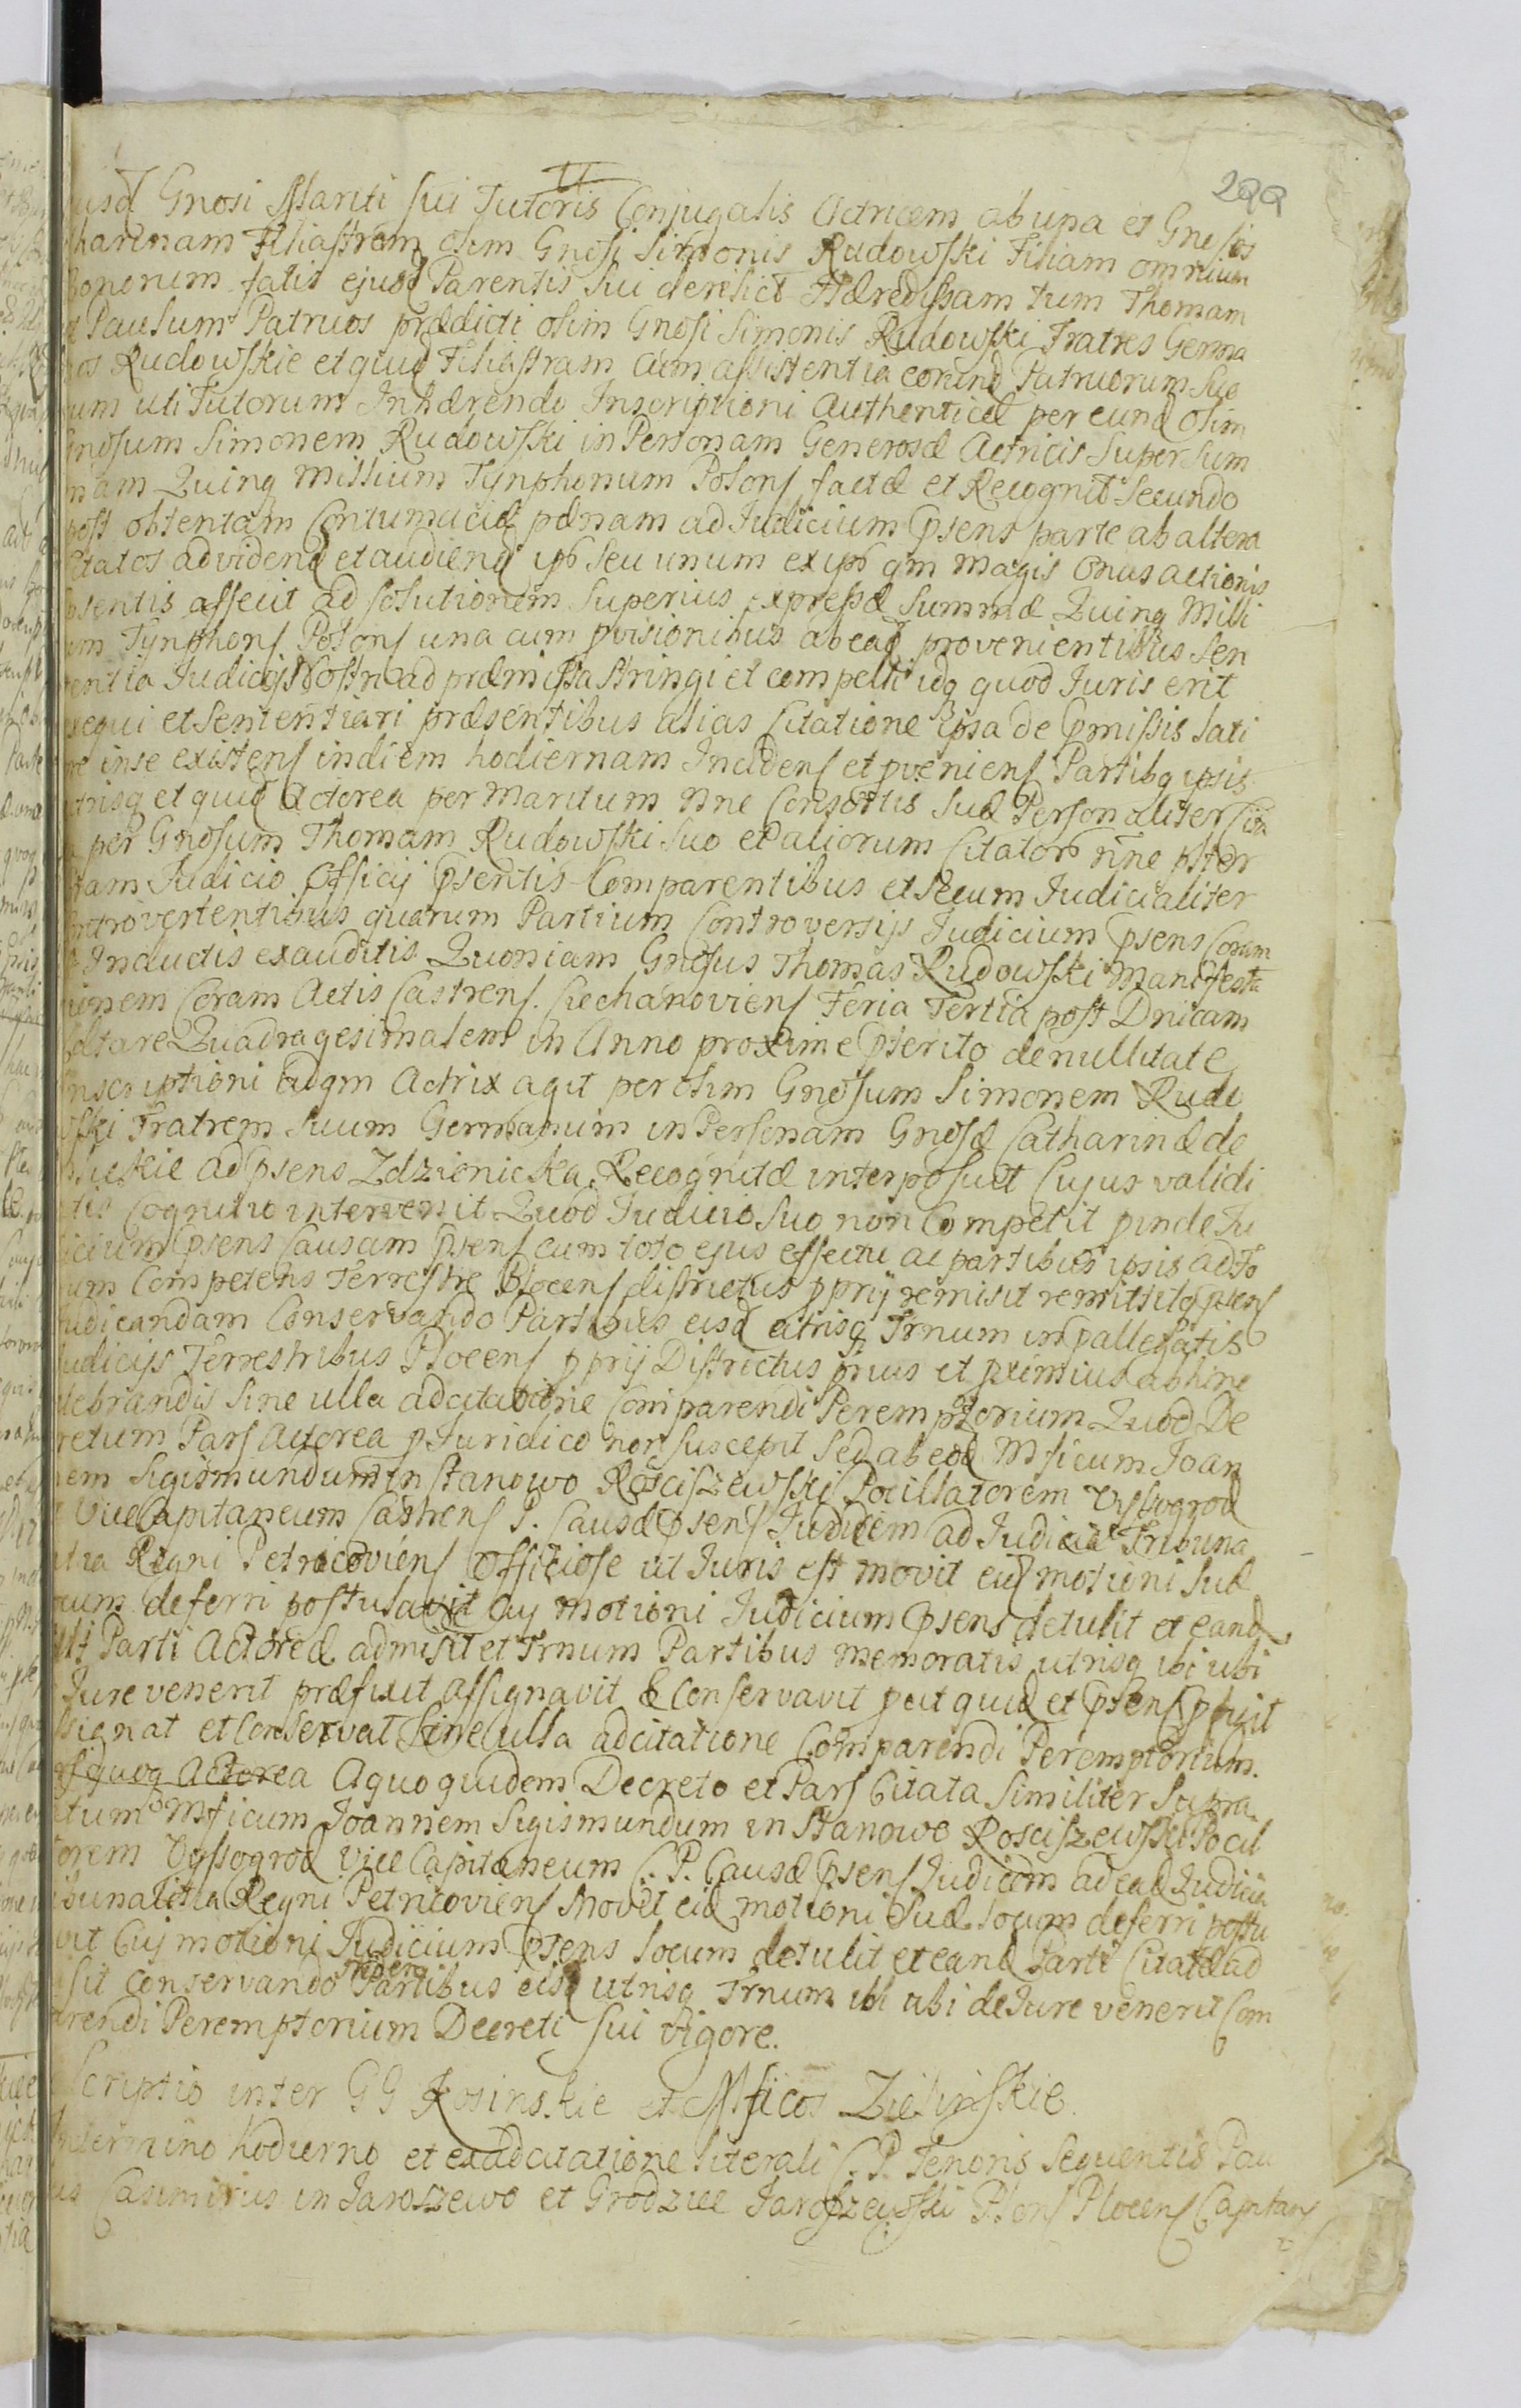 299
Gnosi Mariti sui Tutoris Conjugalis Actricem ab una et Gnosos
tharinam Filiastram olim Gnosi Simonis Rudowski Filiam omnium
Bonorum fatis ejusd Parentis sui derelict Hæredissam tum Thomam
et Paulum Patruos prædicti olim Gnosi Simonis Rudowski Fratres Germa
nos Rudowskie et quid Filiastram cum assistentia eorund Patruorum suo
rum uti Tutorum Inhærendo Inscriptioni Authenticæ per eund olim
Gnosum Simonem Rudowski in Personam Generosæ Actricis super sum
mam Quinq Millium Tynphonum Polons factæ et Recognit Secundo
post obtentam Contumaciæ pænam ad Judicium Psens parte ab altera
Citatos ad vidend et audiend ips seu unum ex ips qm magis onus actionis
Psentis affecit ad solutionem superius expressæ summæ Quinq Milli
um Tynphons Polons una cum pvisionibus ab ead provenientibus Sen
tentia Judicij Nostri ad præmissa stringi et compelli idq quod Juris erit
exequi et sententiari præsentibus alias Citatione ipsa de Pmissis lati
ore in se existens in diem hodiernam Incidens et pveniens Partibq ipsis
utrisq et quid Actorea per Maritum nne Consortis suæ Personaliter Cita
ta per Gnosum Thomam Rudowski suo et aliorum Citator nne pster
Coram Judicio Officij Psentis Comparentibus et secum Judicialiter
Controvertentibus quarum Partium Controversijs Judicium Psens Coram
se Inductis exauditis Quoniam Gnosus Thomas Rudowski Manifesta
tionem Coram Actis Castrens. Ciechanoviens Feria Tertia post Dnicam
Quadragesimalem in Anno proxime Pterito de nullitate
Inscriptioni ad qm Actrix agit per olim Gnosum Simonem Rudo
wski Fratrem suum Germanum in Personam Gnosæ Catharinæ de
ad Psens Zdzionicka Recognitæ interposuit Cujus validi
tatis Cognitio intervenit Quod Judicio suo non Competit pinde Ju
dicium Psens Causam Psens cum toto ejus effectu ac partibus ipsis ad Fo
rum Competens Terrestre Plocens districtus pprij remisit remittitq psens
Judicandam Conservando Partibus eisd utrisq Trnum in pallegatis
Judicijs Terrestribus Plocens pprij Districtus prius et pximius abhinc
celebrandis sine ulla adcitatione Comparendi Peremptorium Quod De
cretum Pars Actorea p Juridico non suscepit sed ab eod Mficum Joan
nem Sigismundum in Stanowo Rosciszewski Pocillatorem Vyssogrod
Vice Capitaneum Castrens P. Causæ Psens Judicem ad Judicia Tribuna
litia Regni Petricoviens Officiose ut Juris est movit eid motioni suæ
locum deferri postulavit Cuj motioni Judicium Psens detulit et eand
Parti Actoreæ admisit et Trnum Partibus memoratis utrisq ibi ubi
de Jure venerit præfixit assignavit & conservavit put quid et Psens pfixit
assignat et Conservat sine ulla adcitatione Comparendi Peremptorium.
Pars quoq Actorea A quo quidem Decreto et Pars Citata similiter supra
dictum Mficum Joannem Sigismundum in Stanowo Rosciszewski Pocil
latorem Vyssogrod Vice Capitaneum C. P. Causæ Psens Judicem ad ead Judicia
Tribunalitia Regni Petricoviens Movit eid motioni suæ locum deferri postu
lavit Cuj motioni Judicium Psens locum detulit et eand Parti Citatæ ad
misit conservando Partibus eisd utrisq Trnum ibi ubi de Jure venerit Com
parendi Peremptorium Decreti sui vigore.
scriptio inter GG Kosinskie et Mficos Zielinskie.
In termino hodierno et ex adcitatione literali C. P. Tenoris Sequentis Pau
lus Casimirus in Jaroszewo et Grodziec Jaroszewski Plocens Capitans